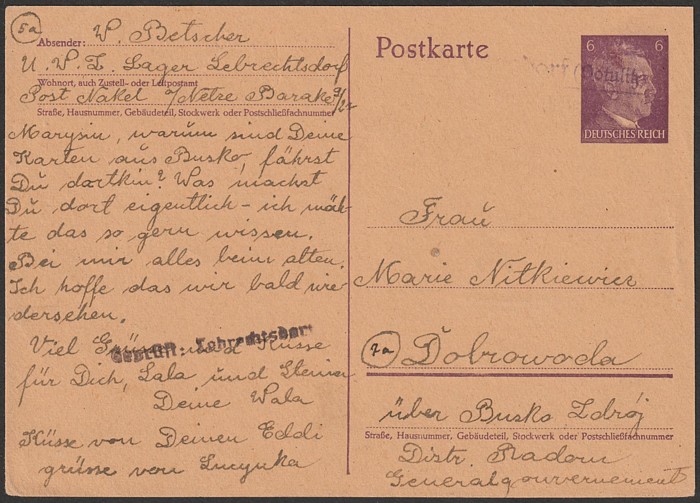 5a
Absender: W. Betscher
U. W. Z. Lager Lebrechtsdorf
Wohnort, auch Zustell- oder Leitpostamt
Post Nakel / Netze Barake
Straße, Hausnummer, Gebäudeteil, Stockwerk oder Postschließfachnummer
Marysiu, warum sind Deine
Karten aus Busko, fährst
Du dortkin? Was machst
Du dort eigentlich – ich möh-
te das so gern wissen.
Bei mir alles beim alten.
Ich hoffe das wir bald wie
dersehen.
Viel Grüsse und Küsse
Geprüft: Lebrechtsdorf
für Dich, Lala und kleinen
Deine Wala
Küsse von Deinen Eddi
grüsse von Lucynka
Postkarte
6 6
DEUTSCHES REICH
Frau
Marie Nitkiewicz
7a
Dobrowoda
über Busko Zdrój
Straße, Hausnummer, Gebäudeteil, Stockwerk oder Postschließfachnummer
Distr. Radom
Generalgouvernement